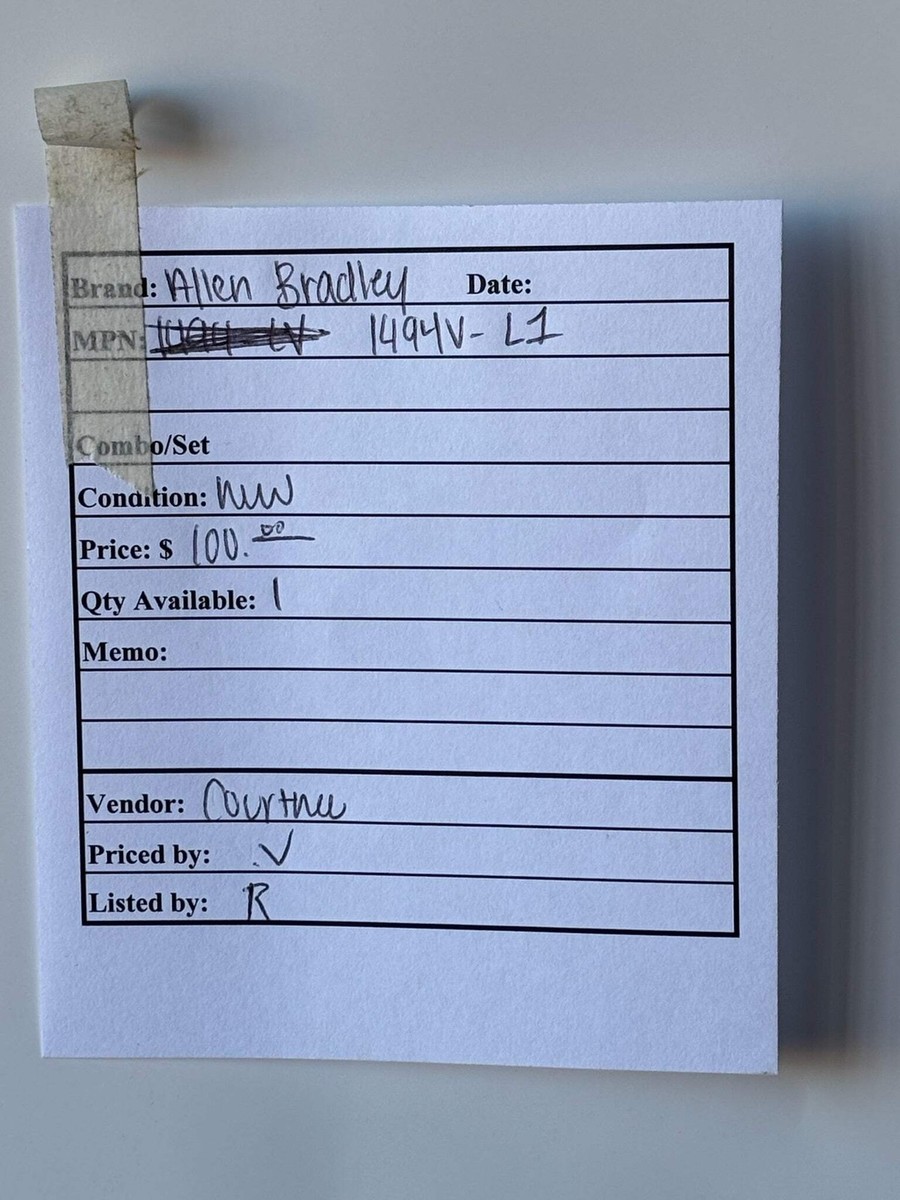 Brand: Allen Bradley Date:
MPN: 1494V-L1
Combo/Set
Condition: New
Price: $ 100.00
Qty Available: 1
Memo:
Vendor: Courtnee
Priced by: V
Listed by: R